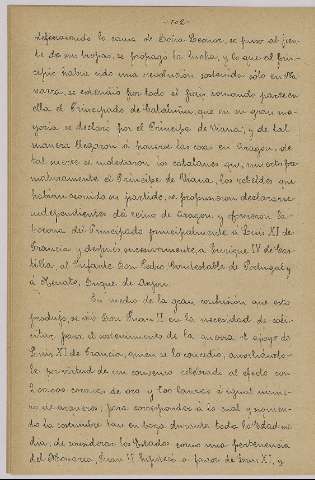 -102-
defendiendo la causa de Doña Leonor, se puso al fren-
te de sus tropas, se propagó la lucha, y lo que al prin-
cipio había sido una revolución sostenida sólo en Na-
varra, se extendió por todo el país tomando parte en
ella el Principado de Cataluña, que en su gran ma-
yoría se declaró por el Príncipe de Viana, y de tal
manera llegaron á ponerse las cosas en Aragón, de
tal suerte se molestaron los catalanes que, muerto pre-
maturamente el Príncipe de Viana, los rebeldes que
habían seguido su partido, se propusieron declararse
independientes del reino de Aragón y ofrecieron la
corona del Principado principalmente á Luis XI de
Francia y después sucesivamente, á Enrique IV de Cas-
tilla, al Infante Don Pedro Condestable de Portugal y
á Renato, Duque de Anjou.
En medio de la gran confusión que esto
produjo, se vió Don Juan II en la necesidad de soli-
citar para el sostenimiento de la guerra el apoyo de
Luis XI de Francia, quien se lo concedió, auxiliándo-
le por virtud de un convenio celebrado al efecto con
coronas de oro y las lanzas é igual núme-
ro de arqueros; para corresponder á lo cual y siguien-
do la costumbre tan en boga durante toda la Edad me-
dia, de considerar los Estados como una pertenencia
del Monarca, Juan II hipotecó á favor de Luis XI, y